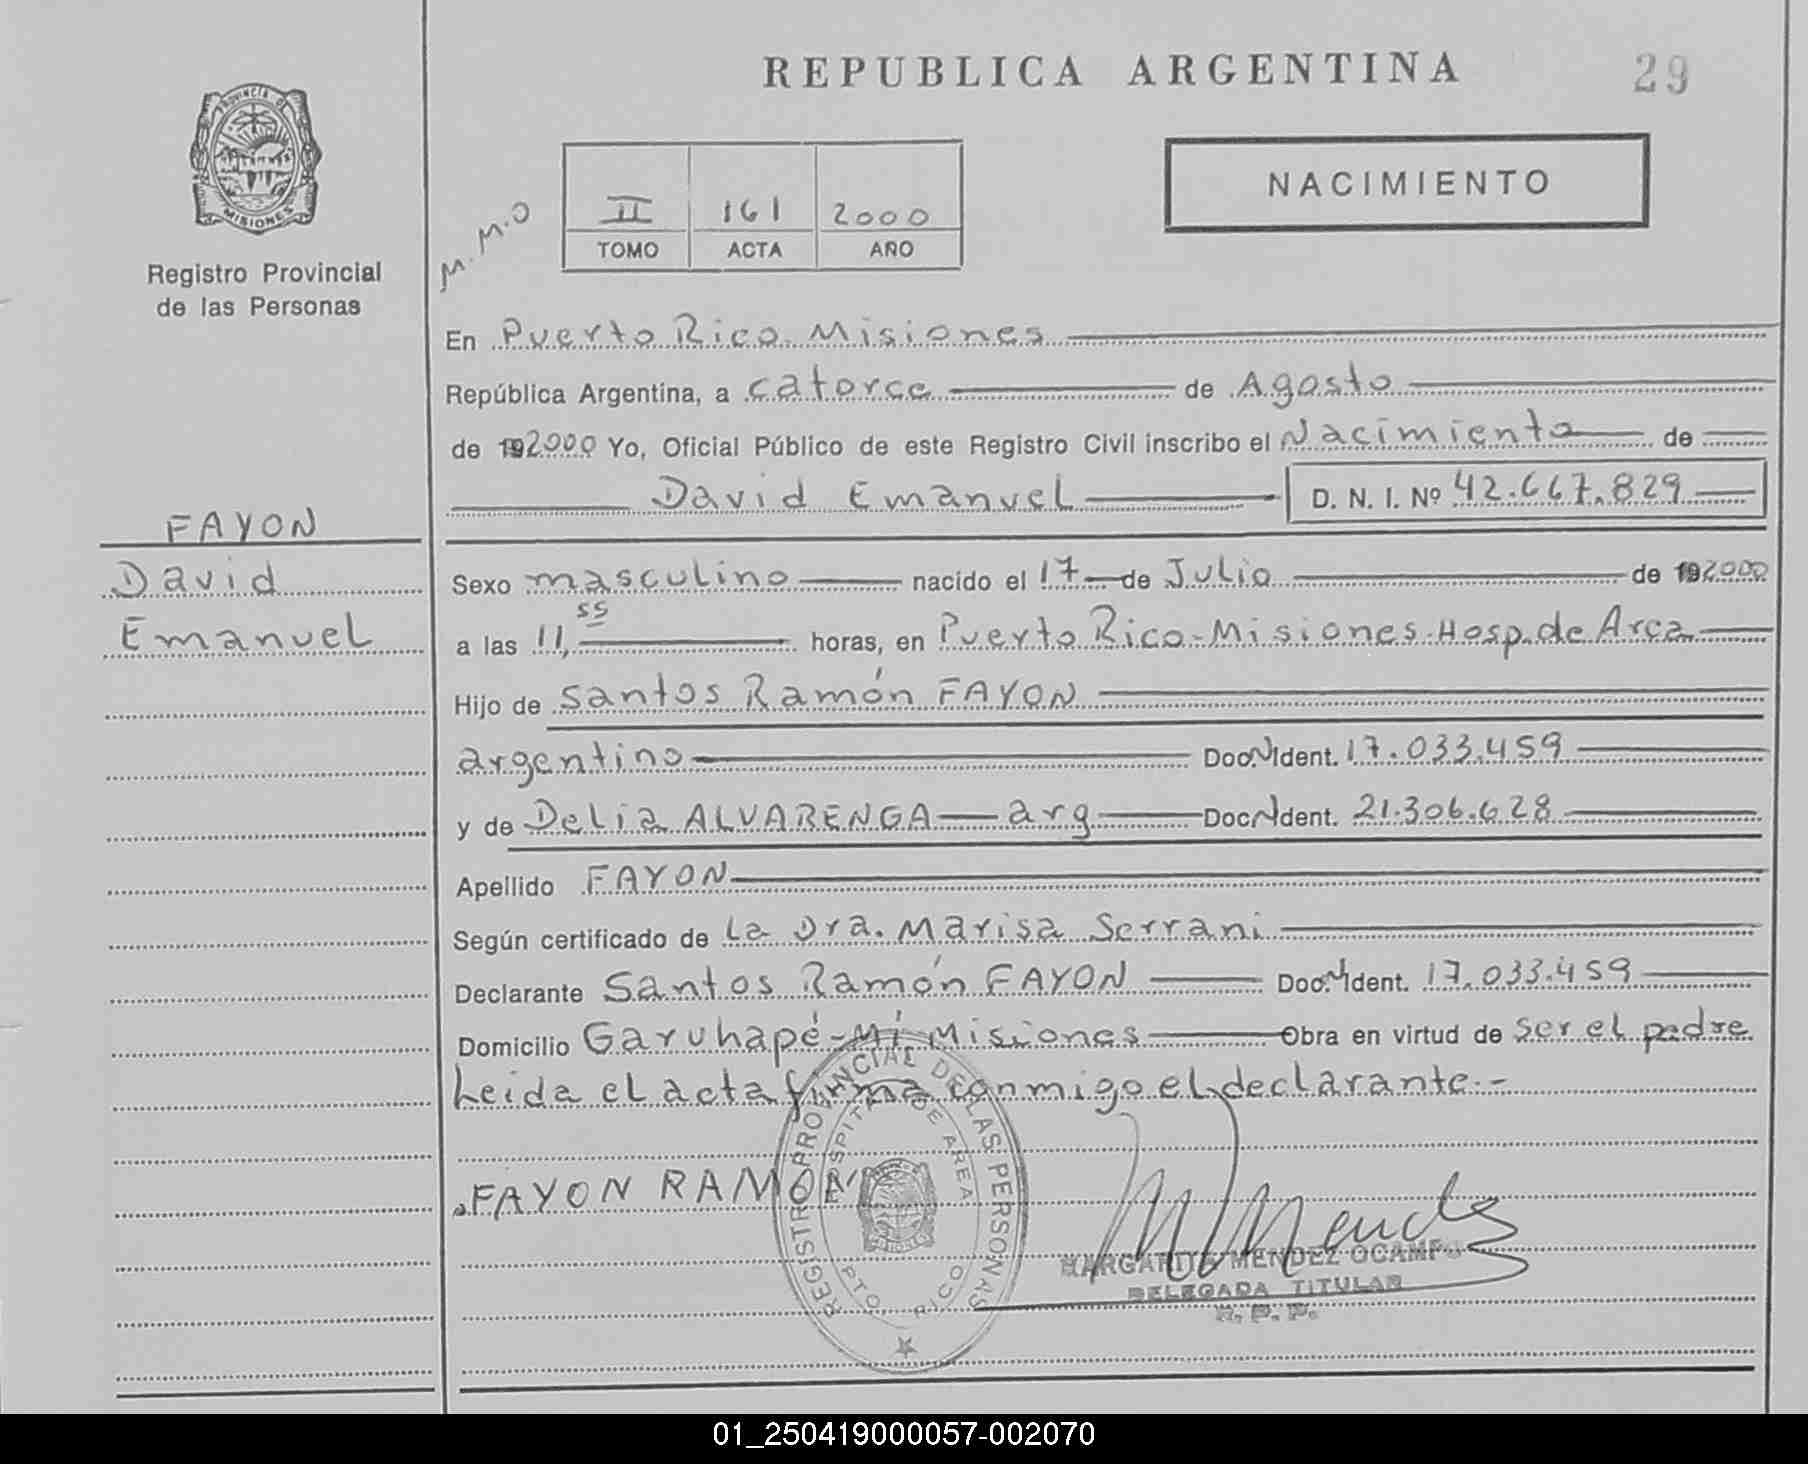 REPUBLICA ARGENTINA
29
PROVINCIA DE
MISIONES
Registro Provincial
de las Personas
M.M.O
II 161 2000
TOMO ACTA AÑO
NACIMIENTO
En Puerto Rico-Misiones
República Argentina, a catorce de Agosto
de 192000 Yo, Oficial Público de este Registro Civil inscribo el Nacimiento de
David Emanuel D. N. I. Nº 42.667.829
FAYON
David
Emanuel
Sexo masculino nacido el 17 de Julio de 192000
a las 11,55 horas, en Puerto Rico-Misiones-Hosp.de Area
Hijo de Santos Ramón FAYON
argentino Doc.N Ident. 17.033.459
y de Delia ALVARENGA arg Doc.N Ident. 21.306.628
Apellido FAYON
Según certificado de La Dra. Marisa Serrani
Declarante Santos Ramón FAYON Doc.N Ident. 17.033.459
Domicilio Garuhapé-Mí Misiones Obra en virtud de ser el padre
Leida el acta firma conmigo el declarante.-
FAYON RAMON
REGISTRO PROVINCIAL DE LAS PERSONAS
HOSPITAL DE AREA
MISIONES
PTO. RICO
MARGARITA MENDEZ OCAMPO
DELEGADA TITULAR
R. P. P.
01_250419000057-002070